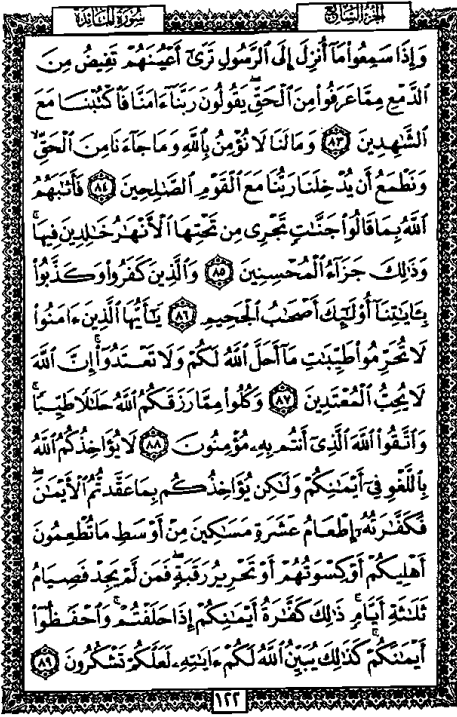 الجزء السابع
سورة المائدة
وَإِذَا سَمِعُوا۟ مَآ أُنزِلَ إِلَى ٱلرَّسُولِ تَرَىٰٓ أَعْيُنَهُمْ تَفِيضُ مِنَ
ٱلدَّمْعِ مِمَّا عَرَفُوا۟ مِنَ ٱلْحَقِّ ۖ يَقُولُونَ رَبَّنَآ ءَامَنَّا فَٱكْتُبْنَا مَعَ
ٱلشَّـٰهِدِينَ ٨٣ وَمَا لَنَا لَا نُؤْمِنُ بِٱللَّهِ وَمَا جَآءَنَا مِنَ ٱلْحَقِّ
وَنَطْمَعُ أَن يُدْخِلَنَا رَبُّنَا مَعَ ٱلْقَوْمِ ٱلصَّـٰلِحِينَ ٨٤ فَأَثَـٰبَهُمُ
ٱللَّهُ بِمَا قَالُوا۟ جَنَّـٰتٍ تَجْرِى مِن تَحْتِهَا ٱلْأَنْهَـٰرُ خَـٰلِدِينَ فِيهَا ۚ
وَذَٰلِكَ جَزَآءُ ٱلْمُحْسِنِينَ ٨٥ وَٱلَّذِينَ كَفَرُوا۟ وَكَذَّبُوا۟
بِـَٔايَـٰتِنَآ أُو۟لَـٰٓئِكَ أَصْحَـٰبُ ٱلْجَحِيمِ ٨٦ يَـٰٓأَيُّهَا ٱلَّذِينَ ءَامَنُوا۟
لَا تُحَرِّمُوا۟ طَيِّبَـٰتِ مَآ أَحَلَّ ٱللَّهُ لَكُمْ وَلَا تَعْتَدُوٓا۟ ۚ إِنَّ ٱللَّهَ
لَا يُحِبُّ ٱلْمُعْتَدِينَ ٨٧ وَكُلُوا۟ مِمَّا رَزَقَكُمُ ٱللَّهُ حَلَـٰلًا طَيِّبًا ۚ
وَٱتَّقُوا۟ ٱللَّهَ ٱلَّذِىٓ أَنتُم بِهِۦ مُؤْمِنُونَ ٨٨ لَا يُؤَاخِذُكُمُ ٱللَّهُ
بِٱللَّغْوِ فِىٓ أَيْمَـٰنِكُمْ وَلَـٰكِن يُؤَاخِذُكُم بِمَا عَقَّدتُّمُ ٱلْأَيْمَـٰنَ ۖ
فَكَفَّـٰرَتُهُۥٓ إِطْعَامُ عَشَرَةِ مَسَـٰكِينَ مِنْ أَوْسَطِ مَا تُطْعِمُونَ
أَهْلِيكُمْ أَوْ كِسْوَتُهُمْ أَوْ تَحْرِيرُ رَقَبَةٍ ۖ فَمَن لَّمْ يَجِدْ فَصِيَامُ
ثَلَـٰثَةِ أَيَّامٍ ۚ ذَٰلِكَ كَفَّـٰرَةُ أَيْمَـٰنِكُمْ إِذَا حَلَفْتُمْ ۚ وَٱحْفَظُوٓا۟
أَيْمَـٰنَكُمْ ۚ كَذَٰلِكَ يُبَيِّنُ ٱللَّهُ لَكُمْ ءَايَـٰتِهِۦ لَعَلَّكُمْ تَشْكُرُونَ ٨٩
١٢٢